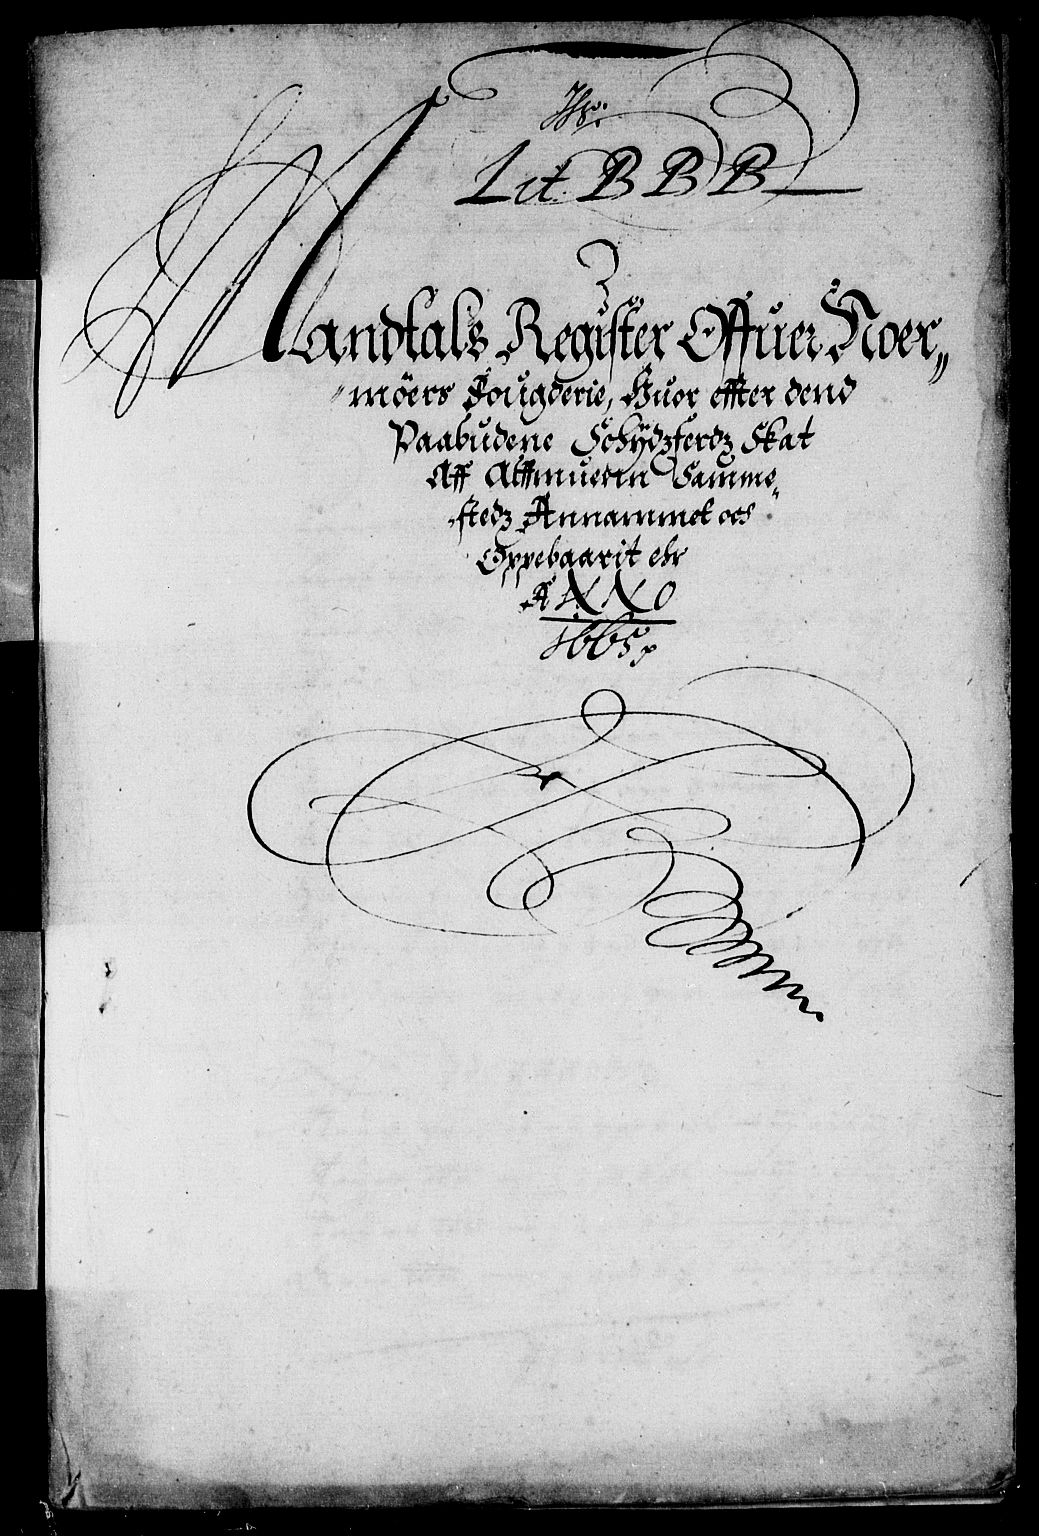 Lit. B B B
Mandtals Register Offuer Noer„
„möers Fougderie, Huor effter dend
Paabudene Schydzferdz Skat
Aff Almuen Samme„
„stedz Annammet oc
Oppebaarit ehr
ANNO
1665